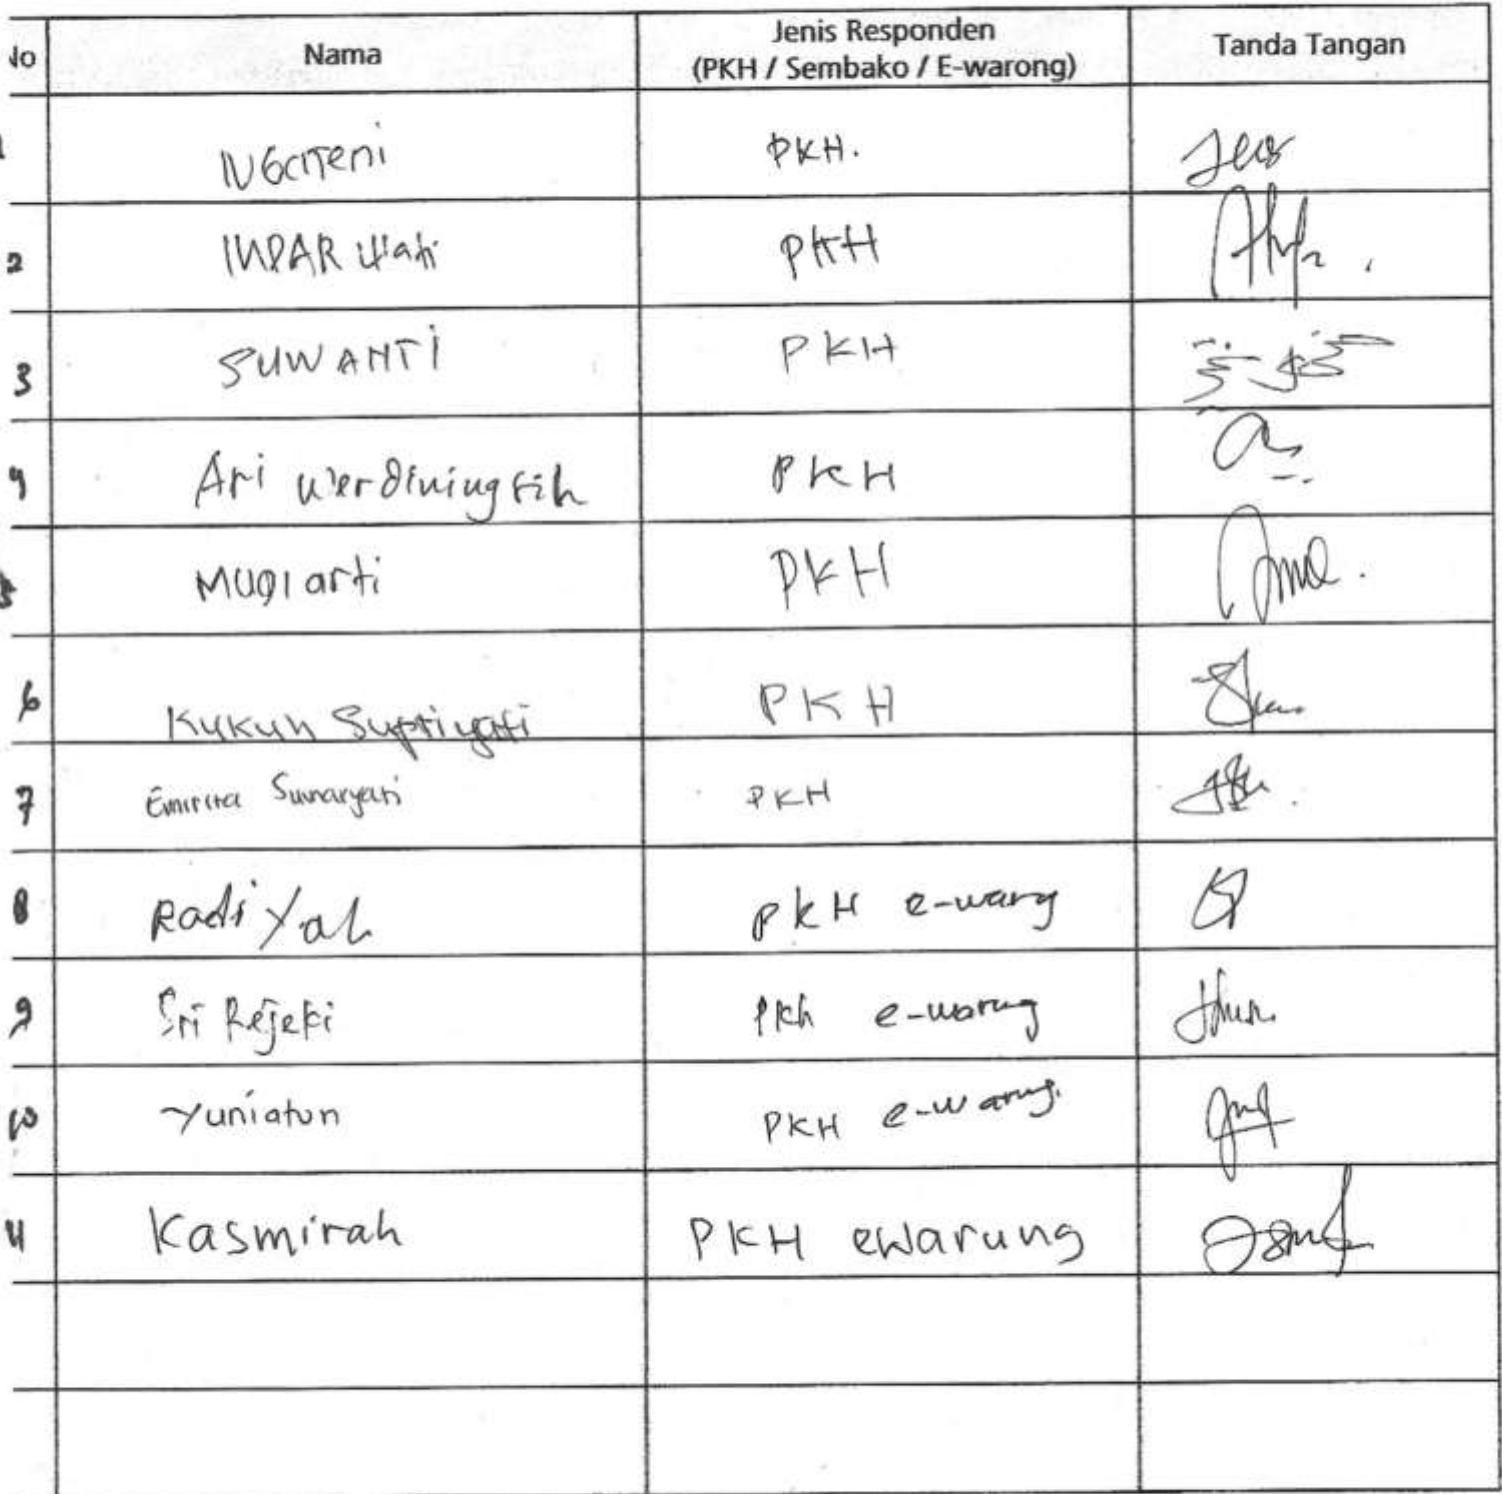 No Nama Jenis Responden (PKH / Sembako / E-warong) Tanda Tangan
1 NGATENI PKH.
2 INDAR Wati PKH
3 SUWANTI PKH
4 Ari Werdiningsih PKH
5 MUGI arti PKH
6 Kukuh Supriyati PKH
7 Sunaryati PKH
8 Radi Yah PKH e-warng
9 Sri Rejeki Pkh e-warung
10 Yuniatun PKH e-warung.
11 Kasmirah PKH eWarung